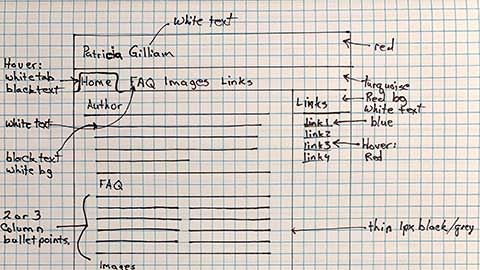 white text
Patricia Gilliam
red
Hover:
white tab
black text
Home FAQ Images Links
turquoise
Author
Links
Red bg
white text
white text
link1
blue
link2
link3
Hover:
Red
link4
black text
white bg
FAQ
2 or 3
column
bullet points.
thin 1px black/grey
Images